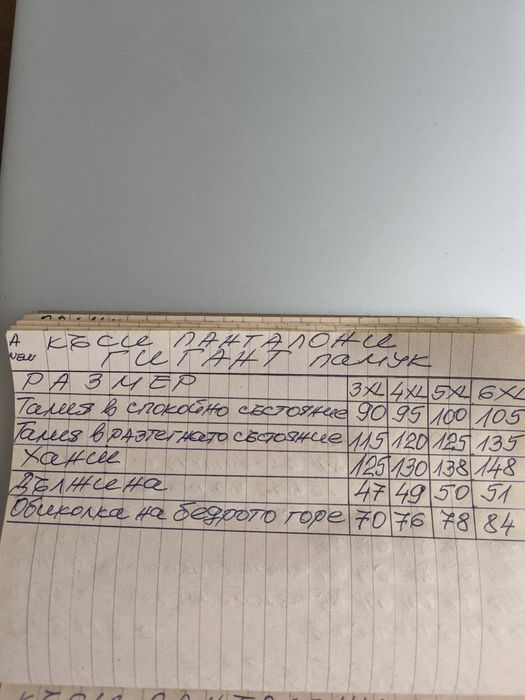 A КЪСИ ПАНТАЛОНИ
NEW ГИГАНТ ПАМУК
РАЗМЕР 3XL 4XL 5XL 6XL
Талия в спокойно състояние 90 95 100 105
Талия в разтегнато състояние 115 120 125 135
Ханш 125 130 138 148
Дължина 47 49 50 51
Обиколка на бедрото горе 70 76 78 84